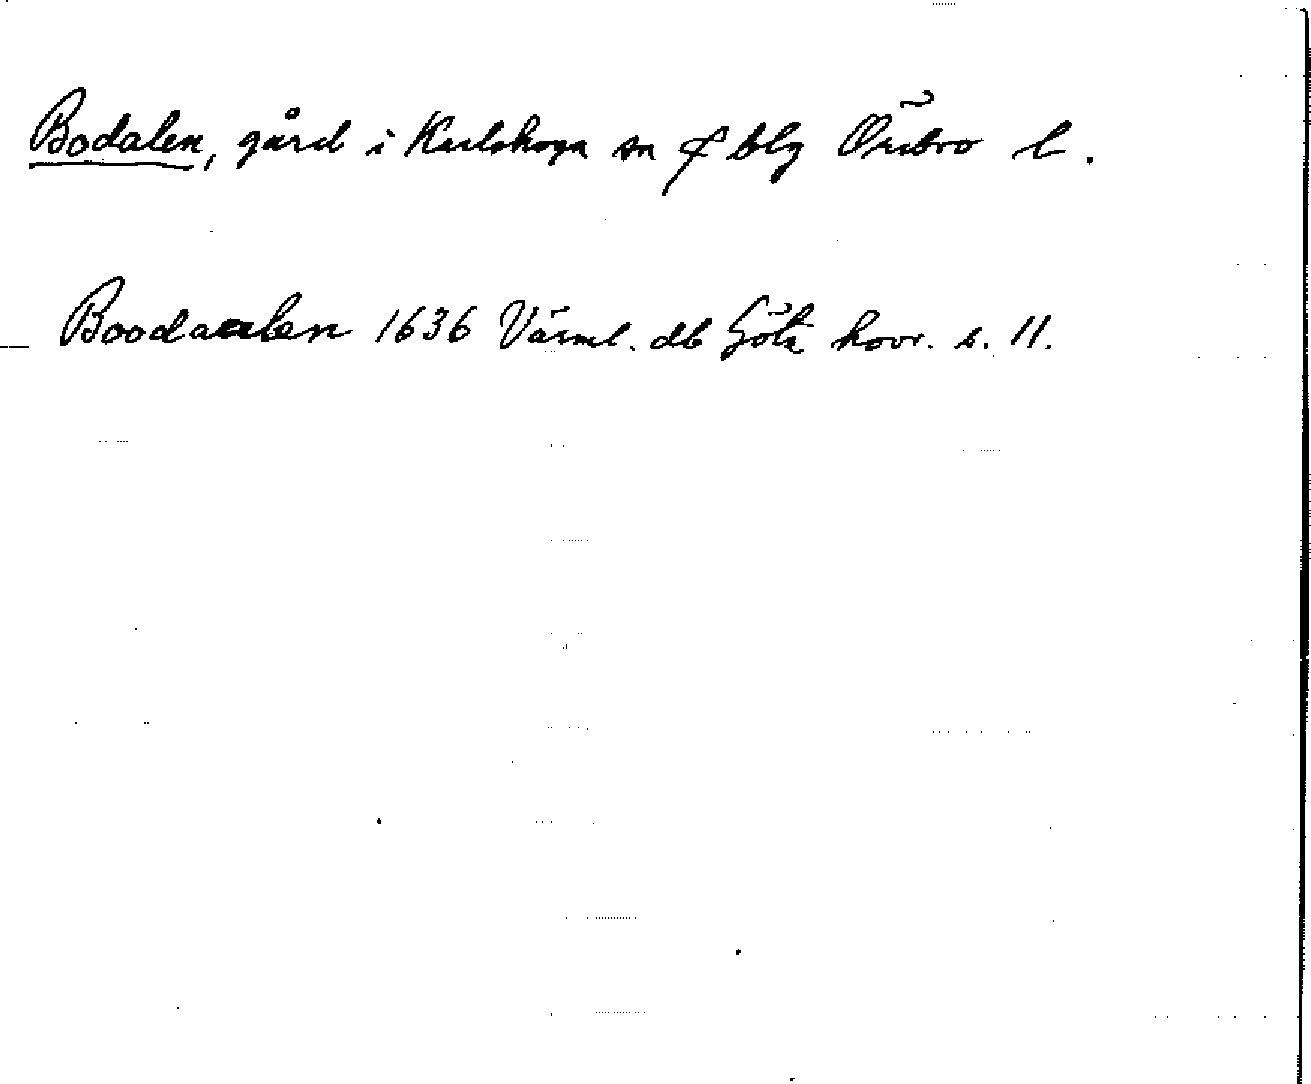 Bodalen, gård i Karlskoga sn & blg Örebro l.
Boodaalen 1636 Värml. db Göta hovr. s. 11.